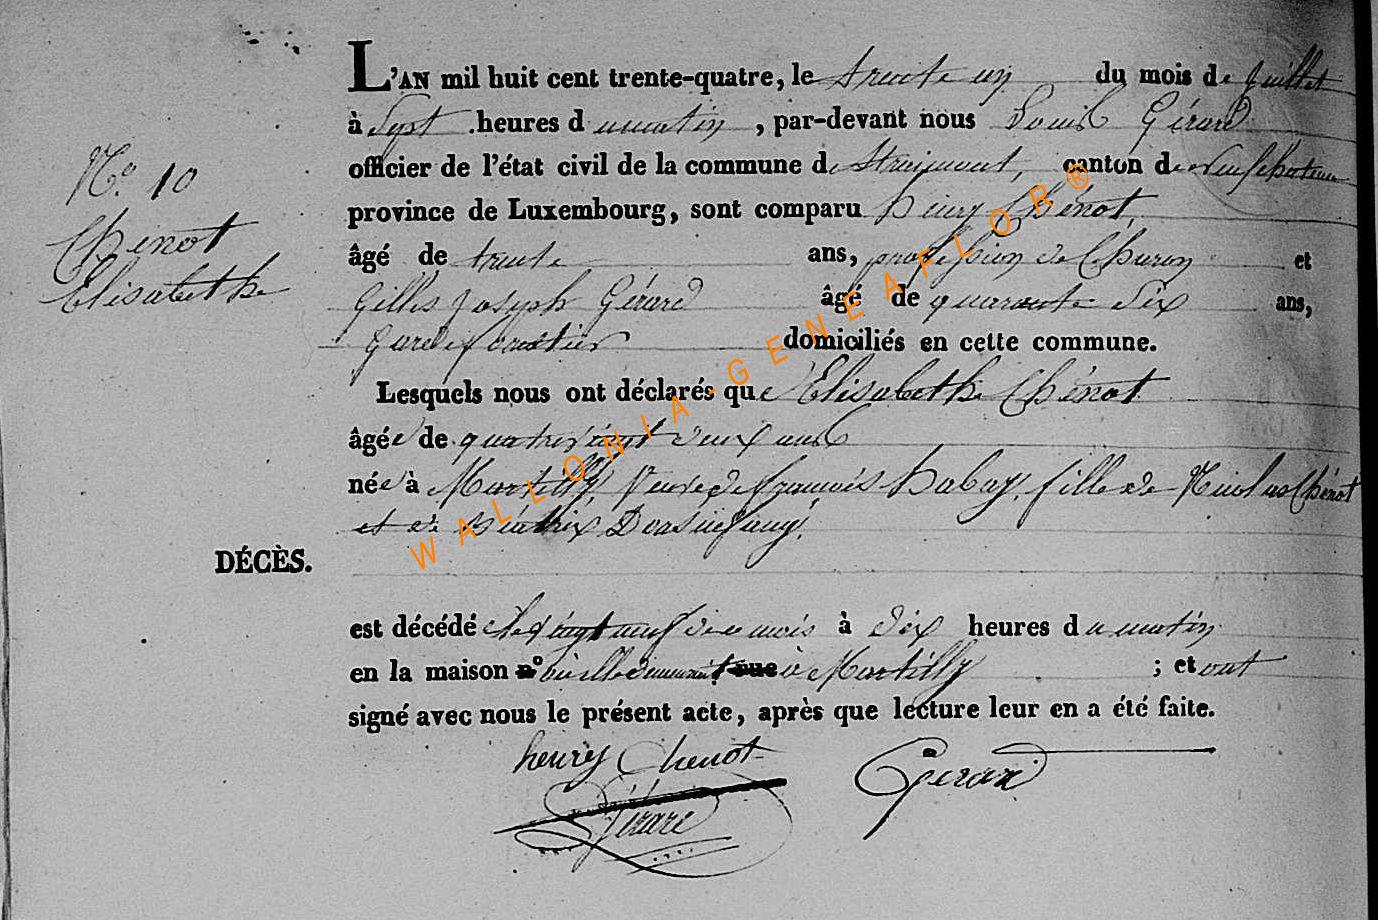 L'AN mil huit cent trente-quatre, le trente un du mois de Juillet
à Sept heures du matin, par-devant nous Louis Gérard
officier de l'état civil de la commune de Straimont, canton de Neufchateau
province de Luxembourg, sont comparu henry Chénot,
âgé de trente ans, profession de Charon et
Gilles Joseph Gérard âgé de quarante Six ans,
Garde forestier domiciliés en cette commune.
Lesquels nous ont déclarés que Elisabethe Chénot
âgée de quatrevingt deux ans
née à Martilly, Veuve de françois habay, fille de Nicolas Chénot
et de Béatrix
est décédé le vingt neuf de ce mois à dix heures du matin
en la maison n° où elle demeurait rue à Martilly ; et ont
signé avec nous le présent acte, après que lecture leur en a été faite.
N° 10
Chénot
Elisabethe
DÉCÈS.
henry Chenot
Gérard
Gérard
WALLONIA-GENEAFLOR®